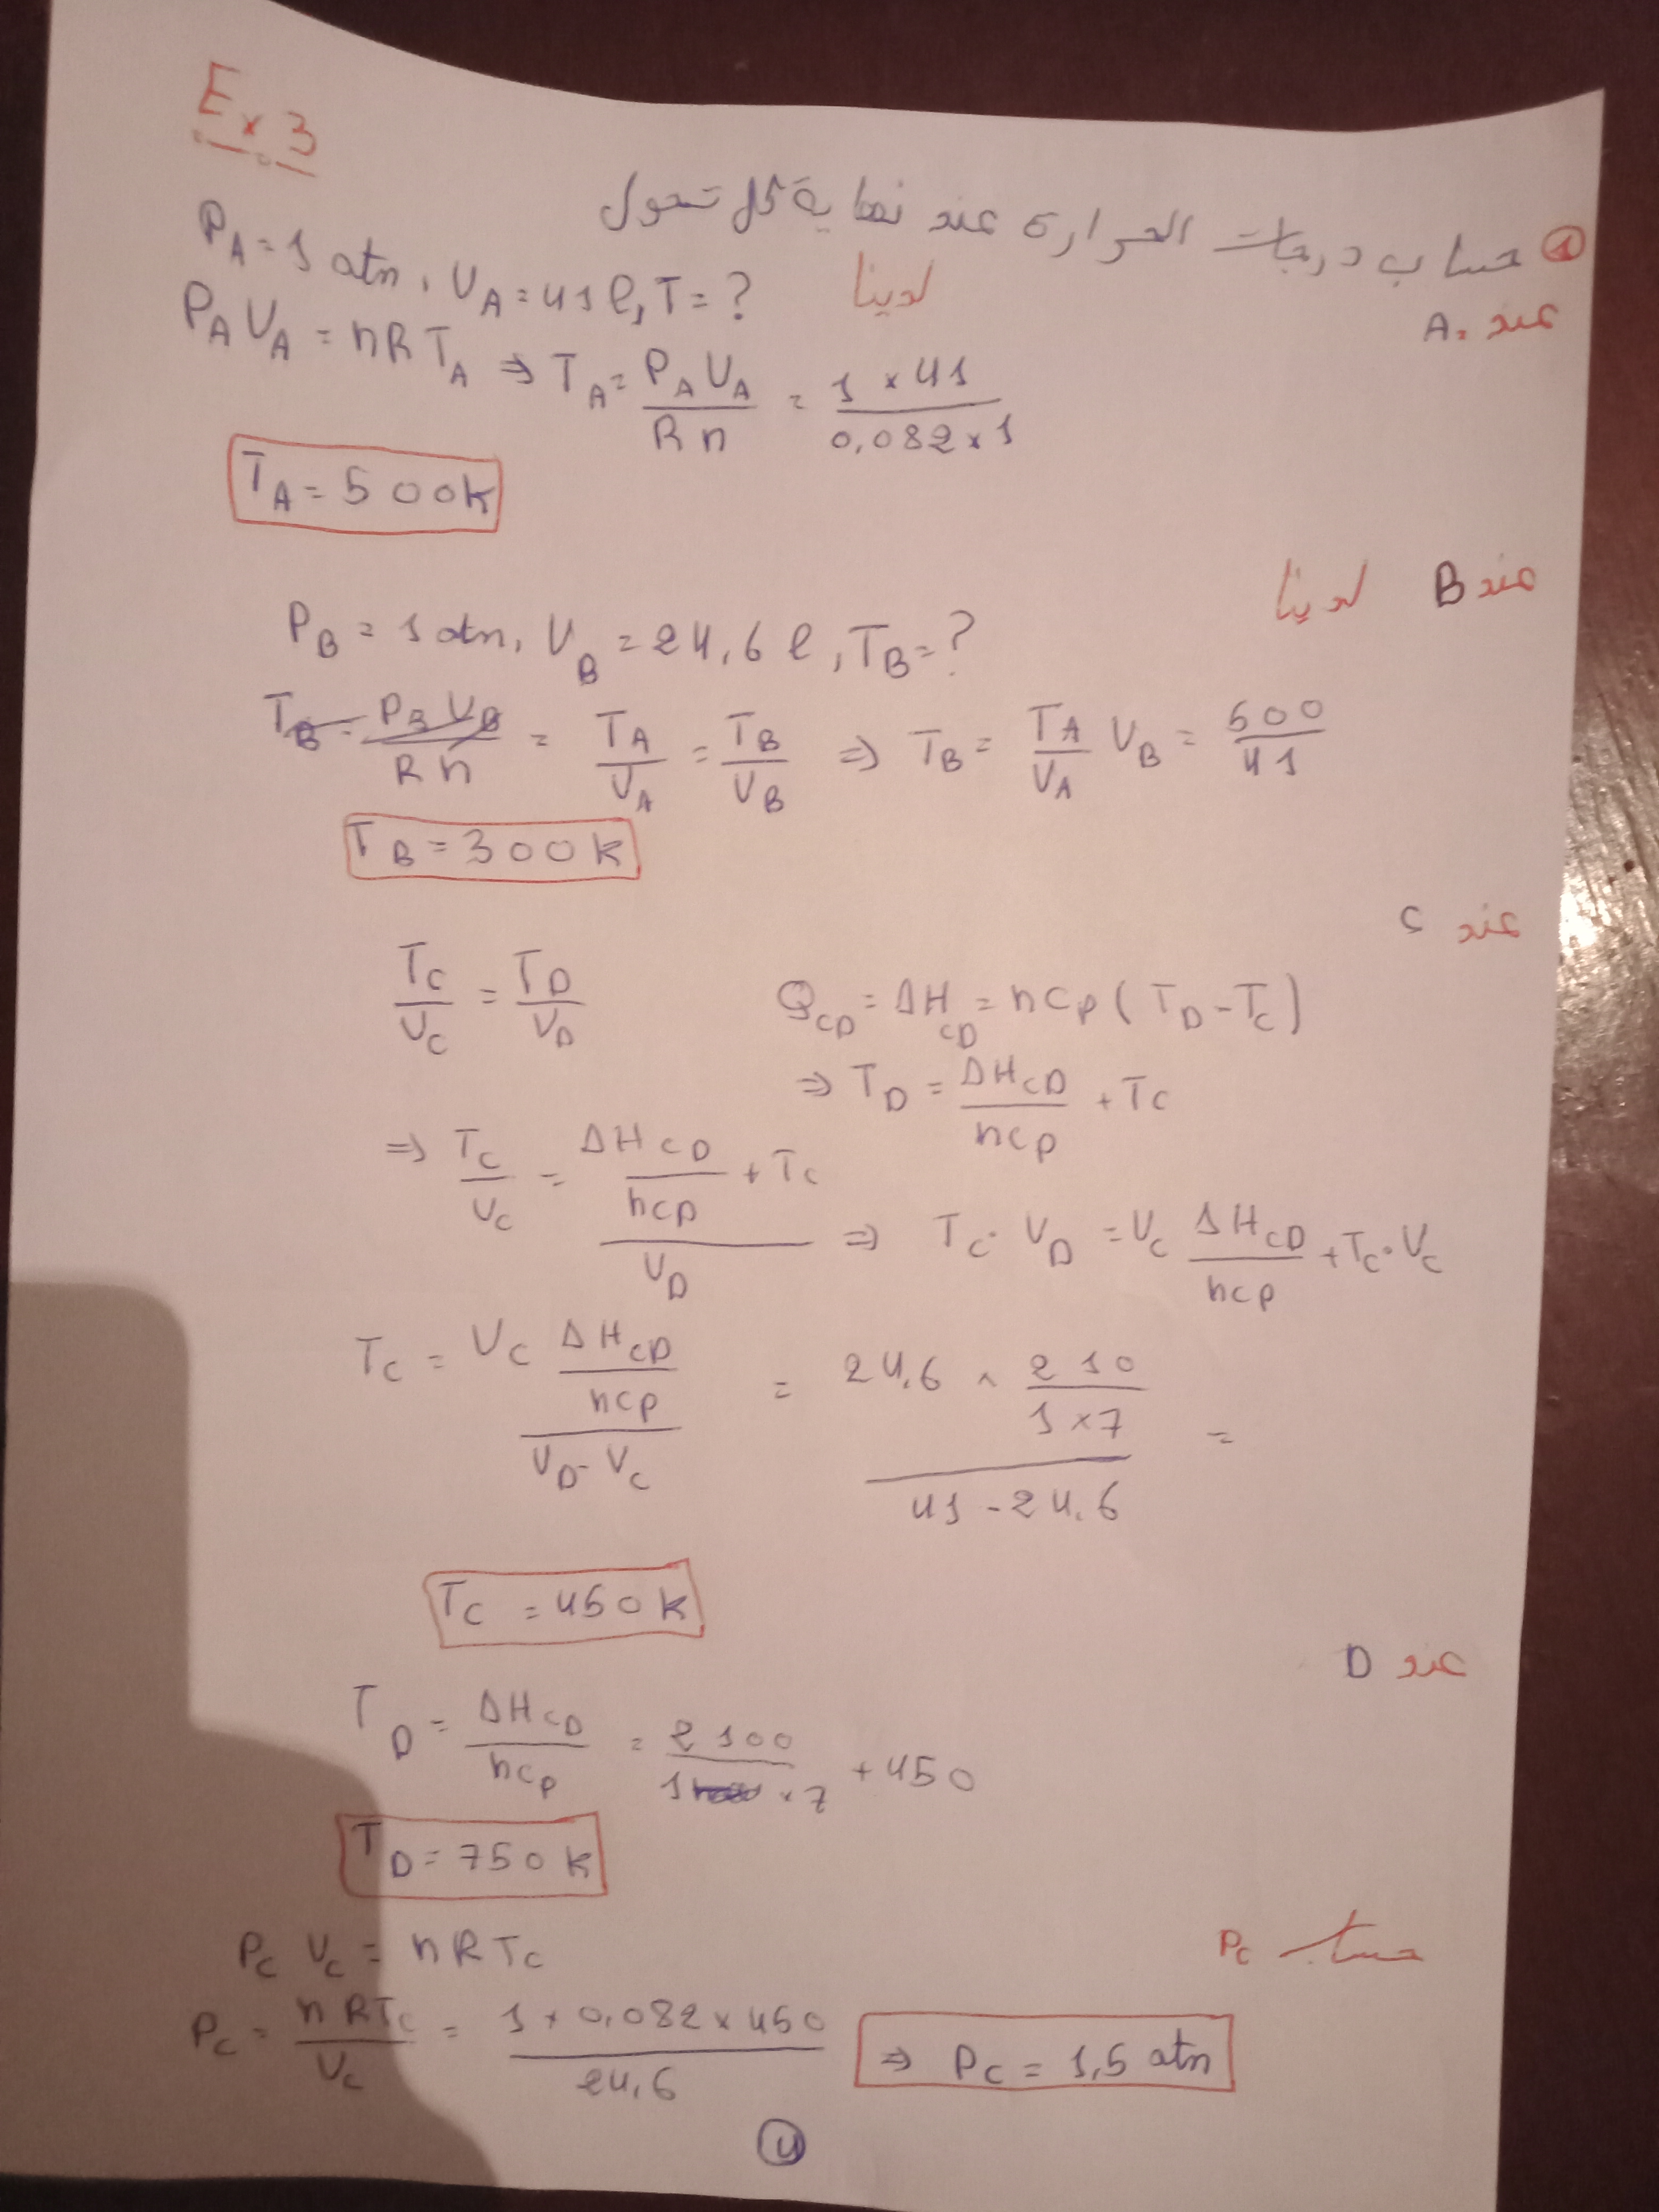 Ex 3
① حساب درجات الحرارة عند نهاية كل تحول
عند A: لدينا
P_A = 1 atm, V_A = 41 l, T = ?
P_A V_A = nRT_A ⇒ T_A = P_A V_A / R n = 1 × 41 / 0,082 × 1
T_A = 500 K
عند B لدينا
P_B = 1 atm, V_B = 24,6 l, T_B = ?
T_B = P_B V_B / R n = T_A / V_A = T_B / V_B ⇒ T_B = T_A / V_A V_B = 500 / 41
T_B = 300 K
عند C
T_C / V_C = T_D / V_D Q_CD = ΔH_CD = nCp (T_D - T_C)
⇒ T_D = ΔH_CD / nCp + T_C
⇒ T_C / V_C = (ΔH_CD / nCp + T_C) / V_D ⇒ T_C · V_D = V_C ΔH_CD / nCp + T_C · V_C
T_C = (V_C ΔH_CD / nCp) / (V_D - V_C) = (24,6 × 210 / 1 × 7) / (41 - 24,6) =
T_C = 450 K
عند D
T_D = ΔH_CD / nCp = 2100 / 1 × 7 + 450
T_D = 750 K
حساب P_C
P_C V_C = nRT_C
P_C = nRT_C / V_C = 1 × 0,082 × 450 / 24,6 ⇒ P_C = 1,5 atm
④